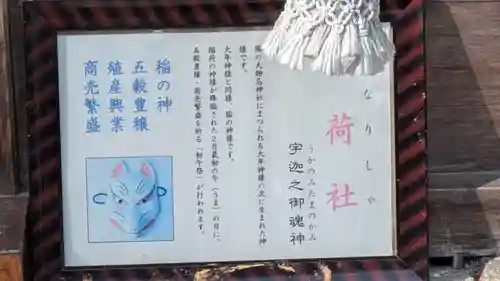 なりしゃ
荷社
うかのみたまのかみ
宇迦之御魂神
の大物忌神社にまつられる大年神様の次に生まれた神
様です。
大年神様と同様、稲の神様です。
稲荷の神様が降臨された2月最初の午(うま)の日に、
五穀豊穣・商売繁盛を祈る「初午祭」が行われます。
稲の神
五穀豊穣
殖産興業
商売繁盛